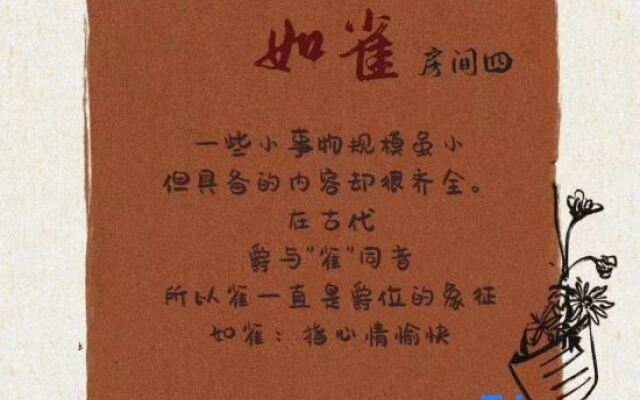 如雀 房间四
一些小事物规模虽小
但具备的内容却很齐全。
在古代
爵与"雀"同音
所以雀一直是爵位的象征
如雀：指心情愉快